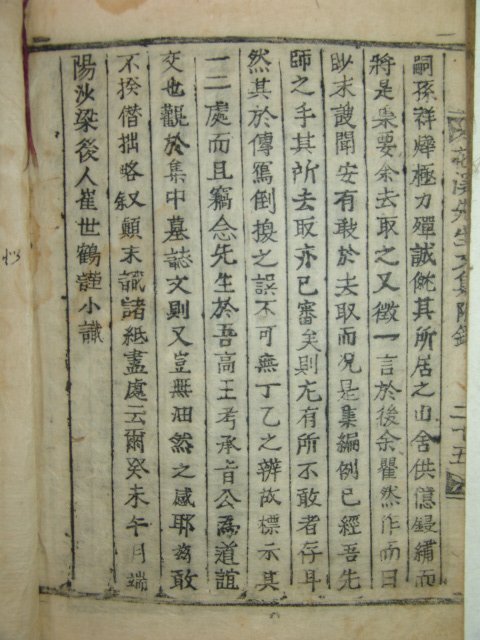 嗣孫祥燁極力殫誠飭其所居之山舍供億鋟繡而
將是集要余去取之又徵一言於後余瞿然作而曰
眇末謏聞安有敢於去取而况是集編例已經吾先
師之手其所去取亦已審矣則尤有所不敢者存耳
然其於傳寫倒換之誤不可無丁乙之辨故標示其
一二處而且竊念先生於吾高王考承旨公爲道誼
交也觀於集中墓誌文則又豈無油然之感耶玆敢
不揆僭拙略叙顚末識諸紙盡處云爾癸未午月端
陽沙梁後人崔世鶴謹小識
溪先生文集附錄
二十五